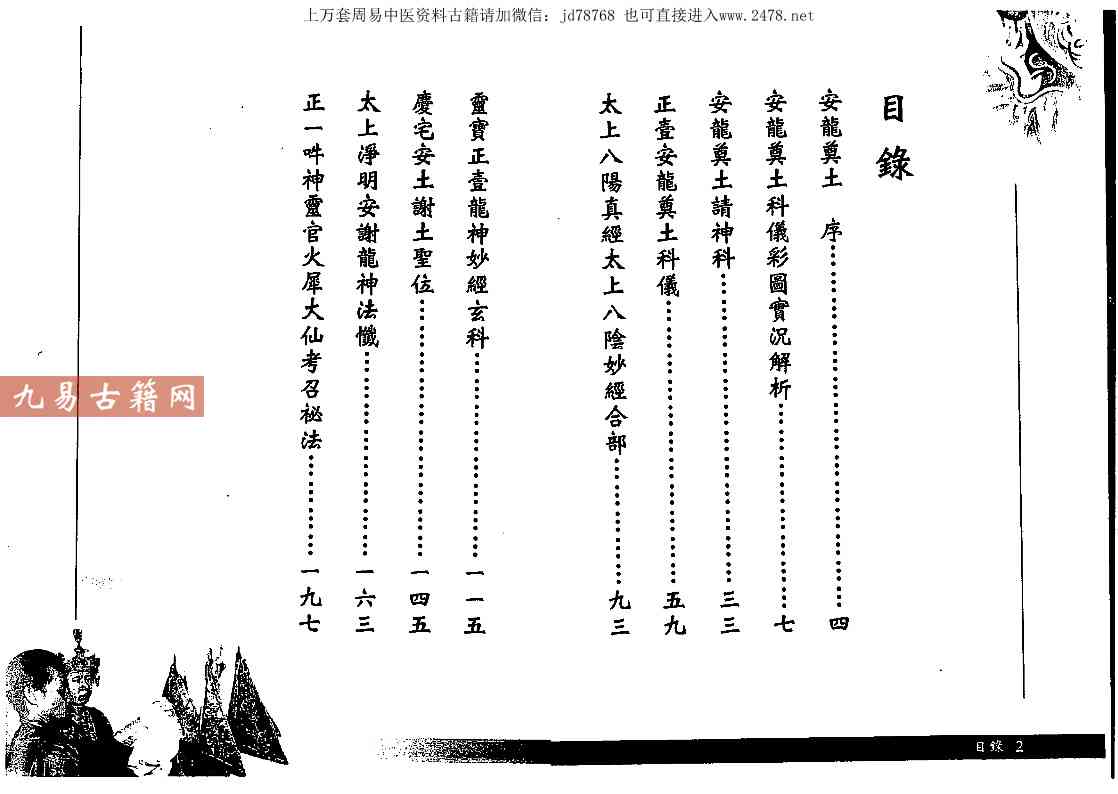 上万套周易中医资料古籍请加微信：jd78768 也可直接进入www.2478.net
目錄
安龍奠土 序……四
安龍奠土科儀彩圖實況解析……七
安龍奠土請神科……三三
正壹安龍奠土科儀……五九
太上八陽真經太上八陰妙經合部……九三
靈寶正壹龍神妙經玄科……一一五
慶宅安土謝土聖位……一四五
太上淨明安謝龍神法懺……一六三
正一吽神靈官火犀大仙考召祕法……一九七
九易古籍网
目錄 2